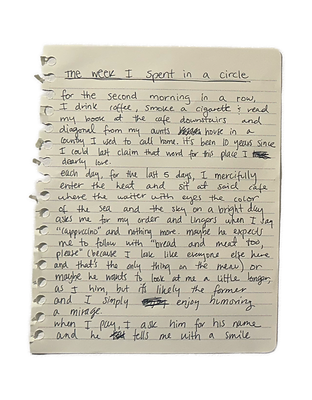 The week I spent in a circle
for the second morning in a row,
I drink coffee, smoke a cigarette & read
my book at the cafe downstairs and
diagonal from my aunts house in a
country I used to call home. it's been 10 years since
I could last claim that word for this place I
dearly love.
each day, for the last 5 days, I mercifully
enter the heat and sit at said cafe
where the waiter with eyes the color
of the sea and the sky on a bright day
asks me for my order and lingers when I say
"cappuccino" and nothing more. maybe he expects
me to follow with "bread and meat too,
please" (because I look like everyone else here
and that's the only thing on the menu) or
maybe he wants to look at me a little longer,
as I him, but it's likely the former
and I simply enjoy humoring
a mirage.
when I pay, I ask him for his name
and he tells me with a smile